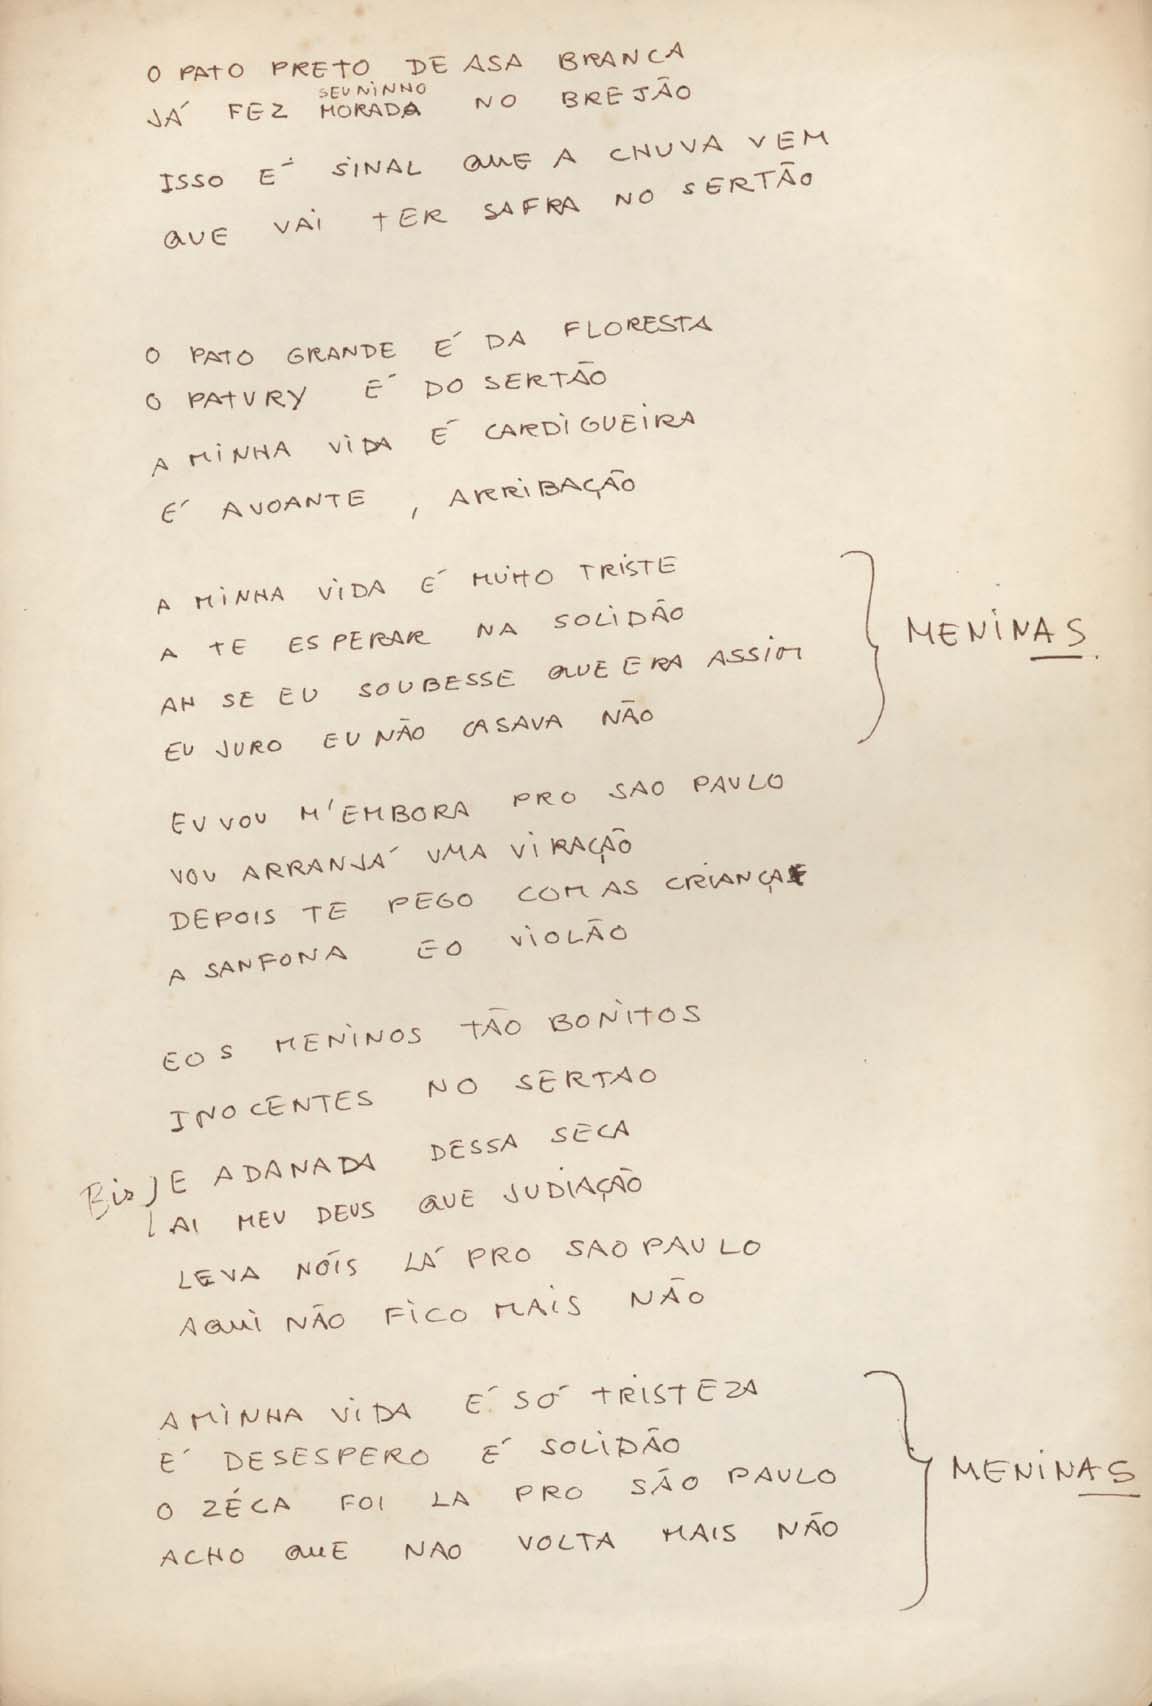 O PATO PRETO DE ASA BRANCA
SEU NINHO
JÁ FEZ MORADA NO BREJÃO
ISSO É SINAL QUE A CHUVA VEM
QUE VAI TER SAFRA NO SERTÃO
O PATO GRANDE É DA FLORESTA
O PATURY É DO SERTÃO
A MINHA VIDA É CARDIGUEIRA
É AVOANTE, ARRIBAÇÃO
A MINHA VIDA É MUITO TRISTE
A TE ESPERAR NA SOLIDÃO
AH SE EU SOUBESSE QUE ERA ASSIM
EU JURO EU NÃO CASAVA NÃO
MENINAS.
EU VOU M'EMBORA PRO SAO PAULO
VOU ARRANJÁ UMA VIRAÇÃO
DEPOIS TE PEGO COM AS CRIANÇAS
A SANFONA E O VIOLÃO
E OS MENINOS TÃO BONITOS
INOCENTES NO SERTAO
Bis E A DANADA DESSA SECA
AI MEU DEUS QUE JUDIAÇÃO
LEVA NÓIS LÁ PRO SAO PAULO
AQUI NÃO FICO MAIS NÃO
A MINHA VIDA É SÓ TRISTEZA
É DESESPERO É SOLIDÃO
O ZÉCA FOI LA PRO SÃO PAULO
ACHO QUE NAO VOLTA MAIS NÃO
MENINAS